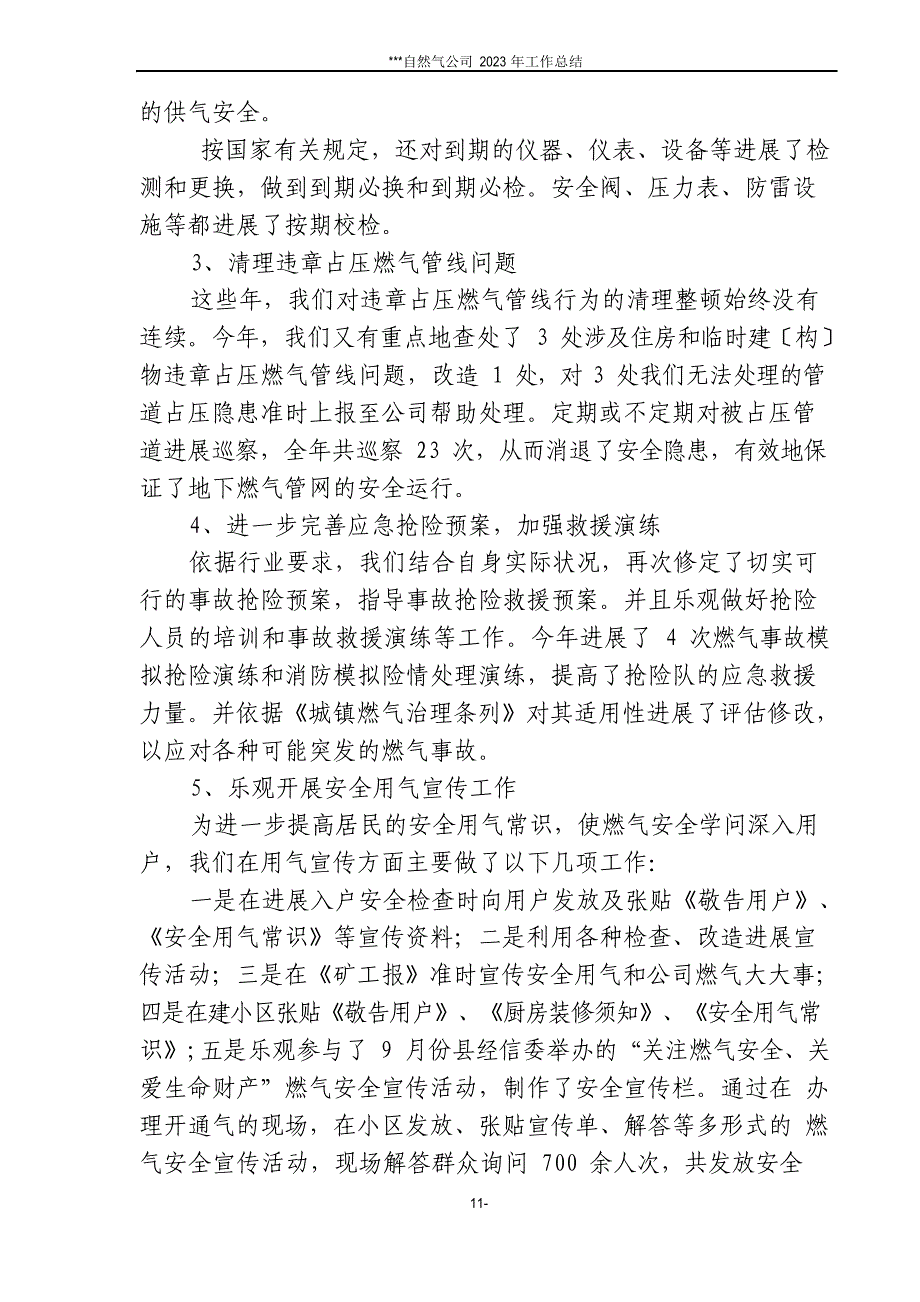 ***自然气公司 2023 年工作总结
的供气安全。
按国家有关规定，还对到期的仪器、仪表、设备等进展了检
测和更换，做到到期必换和到期必检。安全阀、压力表、防雷设
施等都进展了按期校检。
3、清理违章占压燃气管线问题
这些年，我们对违章占压燃气管线行为的清理整顿始终没有
连续。今年，我们又有重点地查处了 3 处涉及住房和临时建〔构〕
物违章占压燃气管线问题，改造 1 处，对 3 处我们无法处理的管
道占压隐患准时上报至公司帮助处理。定期或不定期对被占压管
道进展巡察，全年共巡察 23 次，从而消退了安全隐患，有效地保
证了地下燃气管网的安全运行。
4、进一步完善应急抢险预案，加强救援演练
依据行业要求，我们结合自身实际状况，再次修定了切实可
行的事故抢险预案，指导事故抢险救援预案。并且乐观做好抢险
人员的培训和事故救援演练等工作。今年进展了 4 次燃气事故模
拟抢险演练和消防模拟险情处理演练，提高了抢险队的应急救援
力量。并依据《城镇燃气治理条列》对其适用性进展了评估修改，
以应对各种可能突发的燃气事故。
5、乐观开展安全用气宣传工作
为进一步提高居民的安全用气常识，使燃气安全学问深入用
户，我们在用气宣传方面主要做了以下几项工作：
一是在进展入户安全检查时向用户发放及张贴《敬告用户》、
《安全用气常识》等宣传资料；二是利用各种检查、改造进展宣
传活动；三是在《矿工报》准时宣传安全用气和公司燃气大大事；
四是在建小区张贴《敬告用户》、《厨房装修须知》、《安全用气常
识》；五是乐观参与了 9 月份县经信委举办的“关注燃气安全、关
爱生命财产”燃气安全宣传活动，制作了安全宣传栏。通过在 办
理开通气的现场，在小区发放、张贴宣传单、解答等多形式的 燃
气安全宣传活动，现场解答群众询问 700 余人次，共发放安全
11-